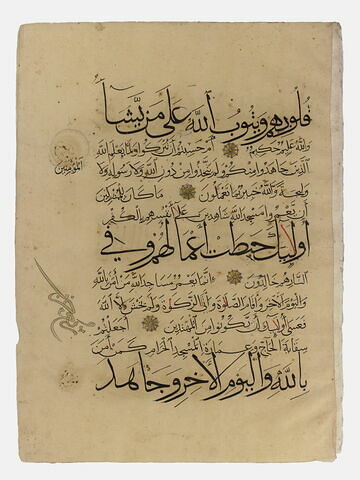 قلوبهم ويتوب الله على من يشآ
والله عليم حكيم ام حسبتم ان تتركوا ولما يعلم الله
الذين جاهدوا منكم ولم يتخذوا من دون الله ولا رسوله ولا
المؤمنين
وليجة والله خبير بما تعملون ما كان للمشركين
ان يعمروا مساجد الله شاهدين على انفسهم بالكفر
اولئك حبطت اعمالهم وفي
النار هم خالدون انما يعمر مساجد الله من امن بالله
واليوم الاخر واقام الصلوة واتى الزكوة ولم يخش الا الله
فعسى اولئك ان يكونوا من المهتدين اجعلتم
سقاية الحاج وعمارة المسجد الحرام كمن امن
بالله واليوم الاخر وجاهد